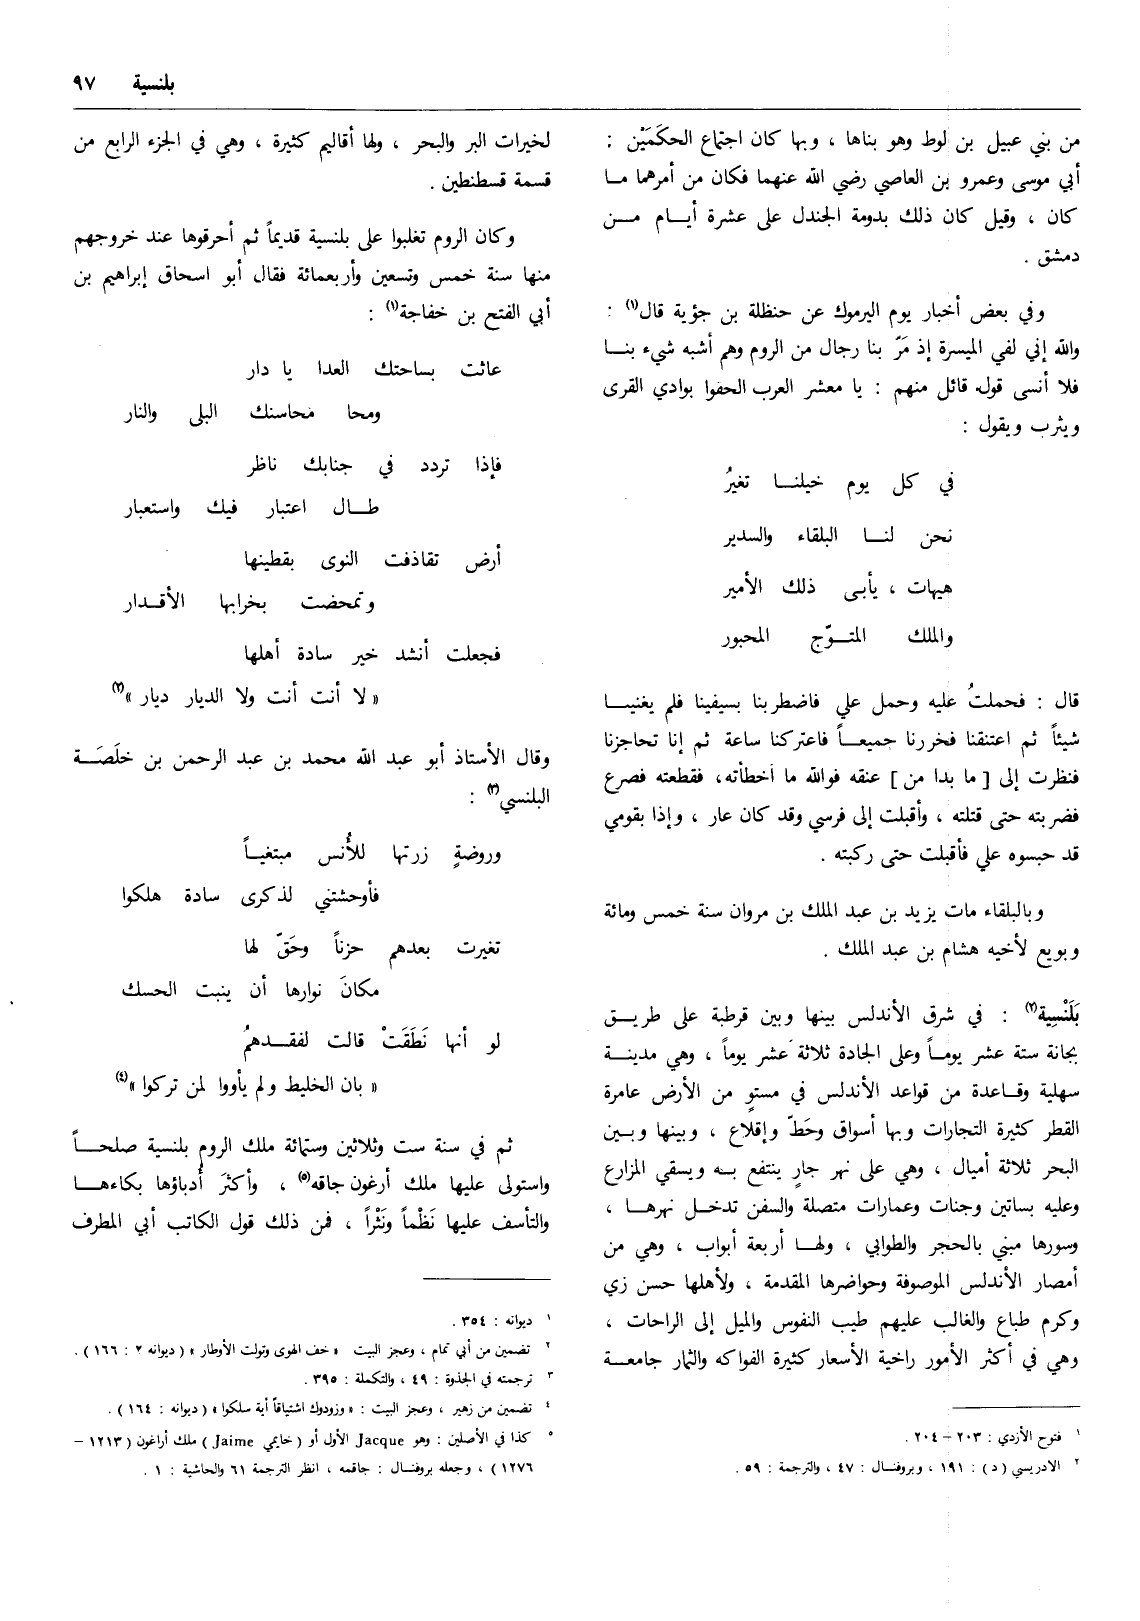 بلنسية ٩٧
من بني عبيل بن لوط وهو بناها ، وبها كان اجتماع الحكَمَيْن :
أبي موسى وعمرو بن العاصي رضي الله عنهما فكان من أمرهما مـا
كان ، وقيل كان ذلك بدومة الجندل على عشرة أيــام مــن
دمشق .
وفي بعض أخبار يوم اليرموك عن حنظلة بن جؤية قال(١) :
والله إني لفي الميسرة إذ مَرّ بنا رجال من الروم وهم أشبه شيء بنــا
فلا أنسى قول قائل منهم : يا معشر العرب الحقوا بوادي القرى
ويثرب ويقول :
في كل يوم خيلنــا تغيرُ
نحن لنــا البلقاء والسدير
هيهات ، يأبى ذلك الأمير
والملك المتــوّج المحبور
قال : فحملتُ عليه وحمل علي فاضطربنا بسيفينا فلم يغنيــا
شيئاً ثم اعتنقنا فخررنا جميعــاً فاعتركنا ساعة ثم إنا تحاجزنا
فنظرت إلى [ ما بدا من ] عنقه فوالله ما أخطأته، فقطعته فصرع
فضربته حتى قتلته ، وأقبلت إلى فرسي وقد كان عار ، وإذا بقومي
قد حبسوه علي فأقبلت حتى ركبته .
وبالبلقاء مات يزيد بن عبد الملك بن مروان سنة خمس ومائة
وبويع لأخيه هشام بن عبد الملك .
بَلَنْسِية(٢) : في شرق الأندلس بينها وبين قرطبة على طريــق
بجانة ستة عشر يومــاً وعلى الجادة ثلاثة عشر يوماً ، وهي مدينــة
سهلية وقــاعدة من قواعد الأندلس في مستوٍ من الأرض عامرة
القطر كثيرة التجارات وبها أسواق وحَطّ وإقلاع ، وبينها وبــين
البحر ثلاثة أميال ، وهي على نهر جارٍ ينتفع بــه ويسقي المزارع
وعليه بساتين وجنات وعمارات متصلة والسفن تدخــل نهرهــا ،
وسورها مبني بالحجر والطوابي ، ولهــا أربعة أبواب ، وهي من
أمصار الأندلس الموصوفة وحواضرها المقدمة ، ولأهلها حسن زي
وكرم طباع والغالب عليهم طيب النفوس والميل إلى الراحات ،
وهي في أكثر الأمور راخية الأسعار كثيرة الفواكه والثمار جامعــة
١ فتوح الأزدي : ٢٠٣ – ٢٠٤ .
٢ الادريسي (د) : ١٩١ ، وبروفنسال : ٤٧ ، والترجمة : ٥٩ .
لخيرات البر والبحر ، ولها أقاليم كثيرة ، وهي في الجزء الرابع من
قسمة قسطنطين .
وكان الروم تغلبوا على بلنسية قديماً ثم أحرقوها عند خروجهم
منها سنة خمس وتسعين وأربعمائة فقال أبو اسحاق إبراهيم بن
أبي الفتح بن خفاجة(١) :
عاثت بساحتك العدا يا دار
ومحا محاسنك البلى والنار
فإذا تردد في جنابك ناظر
طــال اعتبار فيك واستعبار
أرض تقاذفت النوى بقطينها
وتمخضت بخرابها الأقــدار
فجعلت أنشد خير سادة أهلها
« لا أنت أنت ولا الديار ديار »(٢)
وقال الأستاذ أبو عبد الله محمد بن عبد الرحمن بن خلَصَــة
البلنسي(٣) :
وروضةٍ زرتها للأُنس مبتغيــاً
فأوحشتني لذكرى سادة هلكوا
تغيرت بعدهم حزناً وحَقّ لها
مكانَ نوارها أن ينبت الحسك
لو أنها نَطَقَتْ قالت لفقــدهمُ
« بان الخليط ولم يأووا لمن تركوا »(٤)
ثم في سنة ست وثلاثين وستمائة ملك الروم بلنسية صلحــاً
واستولى عليها ملك أرغون جاقه(٥) ، وأكثرَ أُدباؤها بكاءهــا
والتأسف عليها نَظْماً ونَثْراً ، فمن ذلك قول الكاتب أبي المطرف
١ ديوانه : ٣٥٤ .
٢ تضمين من أبي تمام ، وعجز البيت « خف الهوى وتولت الأوطار » ( ديوانه ٢ : ١٦٦ ) .
٣ ترجمته في الجذوة : ٤٩ ، والتكملة : ٣٩٥ .
٤ تضمين من زهير ، وعجز البيت : « وزودوك اشتياقاً أية سلكوا » ( ديوانه : ١٦٤ ) .
٥ كذا في الأصلين : وهو Jacque الأول أو ( خايمي Jaime ) ملك أراغون ( ١٢١٣ –
١٢٧٦ ) ، وجعله بروفنسال : جاقمه ، انظر الترجمة ٦١ والحاشية : ١ .